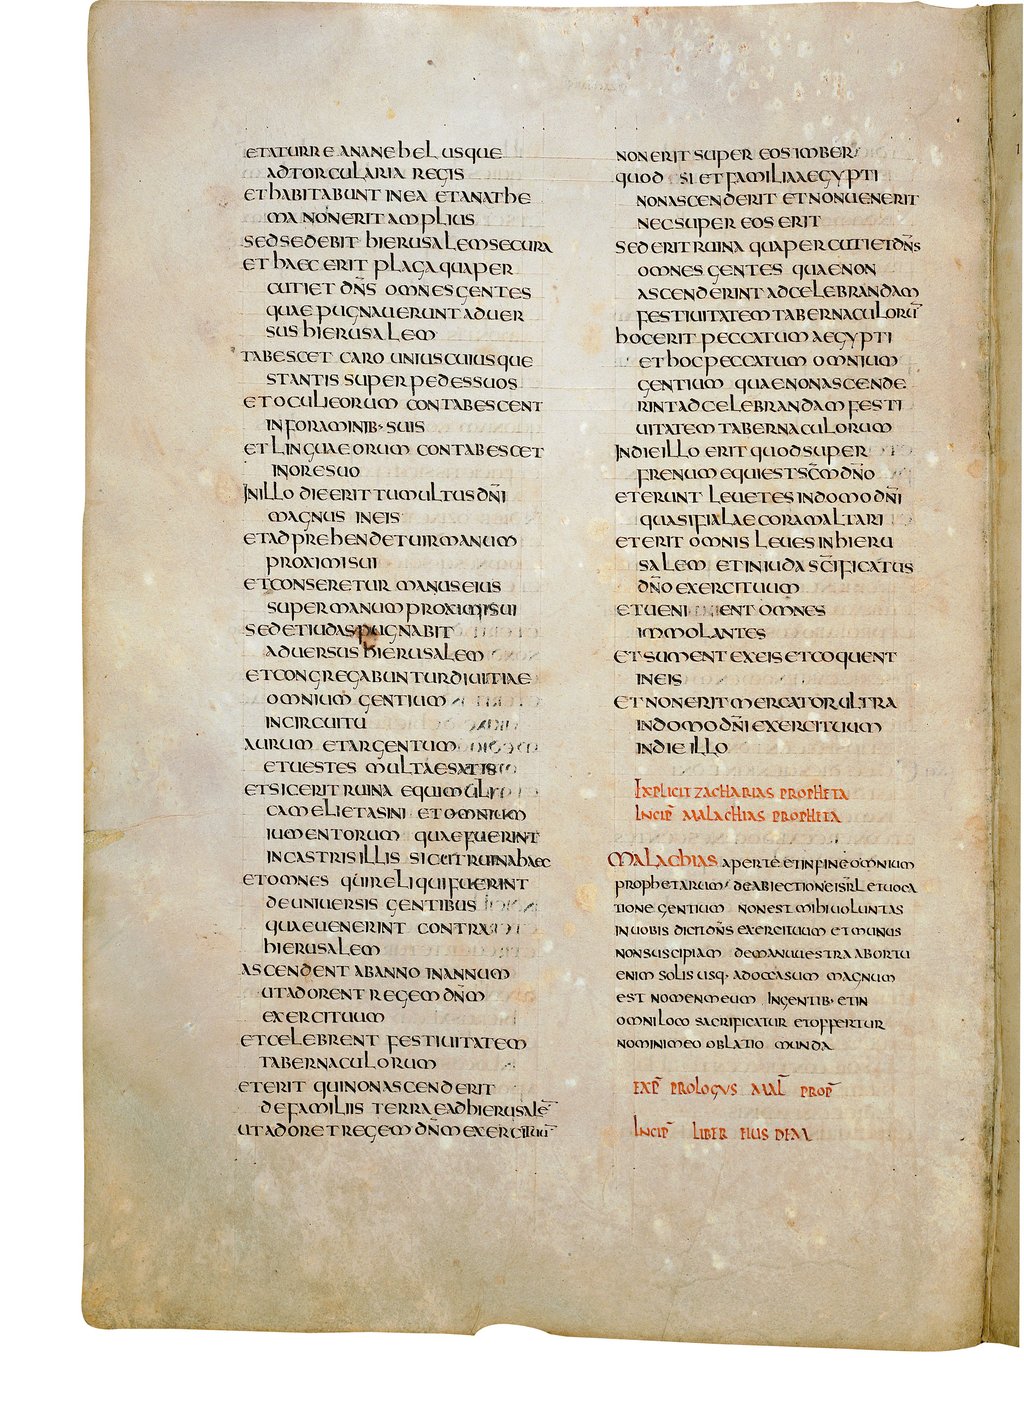 ET A TURRE ANANEHEL USQUE
AD TORCULARIA REGIS
ET HABITABUNT IN EA ET ANATHE
MA NON ERIT AMPLIUS
SED SEDEBIT HIERUSALEM SECURA
ET HAEC ERIT PLAGA QUA PER
CUTIET DN̄S OMNES GENTES
QUAE PUGNAUERUNT ADUER
SUS HIERUSALEM
TABESCET CARO UNIUSCUIUSQUE
STANTIS SUPER PEDES SUOS
ET OCULI EORUM CONTABESCENT
IN FORAMINIB· SUIS
ET LINGUA EORUM CONTABESCET
IN ORE SUO
IN ILLO DIE ERIT TUMULTUS DN̄I
MAGNUS IN EIS
ET ADPREHENDET UIR MANUM
PROXIMI SUI
ET CONSERETUR MANUS EIUS
SUPER MANUM PROXIMI SUI
SED ET IUDAS PUGNABIT
ADUERSUS HIERUSALEM
ET CONGREGABUNTUR DIUITIAE
OMNIUM GENTIUM
IN CIRCUITU
AURUM ET ARGENTUM
ET UESTES MULTAE SATIS
ET SIC ERIT RUINA EQUI MULI
CAMELI ET ASINI ET OMNIUM
IUMENTORUM QUAE FUERINT
IN CASTRIS ILLIS SICUT RUINA HAEC
ET OMNES QUI RELIQUI FUERINT
DE UNIUERSIS GENTIBUS
QUAE UENERINT CONTRA
HIERUSALEM
ASCENDENT AB ANNO IN ANNUM
UT ADORENT REGEM DN̄M
EXERCITUUM
ET CELEBRENT FESTIUITATEM
TABERNACULORUM
ET ERIT QUI NON ASCENDERIT
DE FAMILIIS TERRAE AD HIERUSALE̅
UT ADORET REGEM DN̄M EXERCITUU̅
NON ERIT SUPER EOS IMBER
QUOD SI ET FAMILIA AEGYPTI
NON ASCENDERIT ET NON UENERIT
NEC SUPER EOS ERIT
SED ERIT RUINA QUA PERCUTIET DN̄S
OMNES GENTES QUAE NON
ASCENDERINT AD CELEBRANDAM
FESTIUITATEM TABERNACULORU̅
HOC ERIT PECCATUM AEGYPTI
ET HOC PECCATUM OMNIUM
GENTIUM QUAE NON ASCENDE
RINT AD CELEBRANDAM FESTI
UITATEM TABERNACULORUM
IN DIE ILLO ERIT QUOD SUPER
FRENUM EQUI EST SC̄M DN̄O
ET ERUNT LEUETES IN DOMO DN̄I
QUASI FIALAE CORAM ALTARI
ET ERIT OMNIS LEUES IN HIERU
SALEM ET IN IUDA SC̄IFICATUS
DN̄O EXERCITUUM
ET UENIENT OMNES
IMMOLANTES
ET SUMENT EX EIS ET COQUENT
IN EIS
ET NON ERIT MERCATOR ULTRA
IN DOMO DN̄I EXERCITUUM
IN DIE ILLO
EXPLICIT ZACHARIAS PROPHETA
INCIP̄ MALACHIAS PROPHETA
MALACHIAS APERTE ET IN FINE OMNIUM
PROPHETARUM DE ABIECTIONE ISR̄L ET UOCA
TIONE GENTIUM NON EST MIHI UOLUNTAS
IN UOBIS DICIT DN̄S EXERCITUUM ET MUNUS
NON SUSCIPIAM DE MANU UESTRA AB ORTU
ENIM SOLIS USQ· AD OCCASUM MAGNUM
EST NOMEN MEUM IN GENTIB· ET IN
OMNI LOCO SACRIFICATUR ET OFFERTUR
NOMINI MEO OBLATIO MUNDA
EXP̄ PROLOGUS MAL̄ PROP̄
INCIP̄ LIBER EIUSDEM